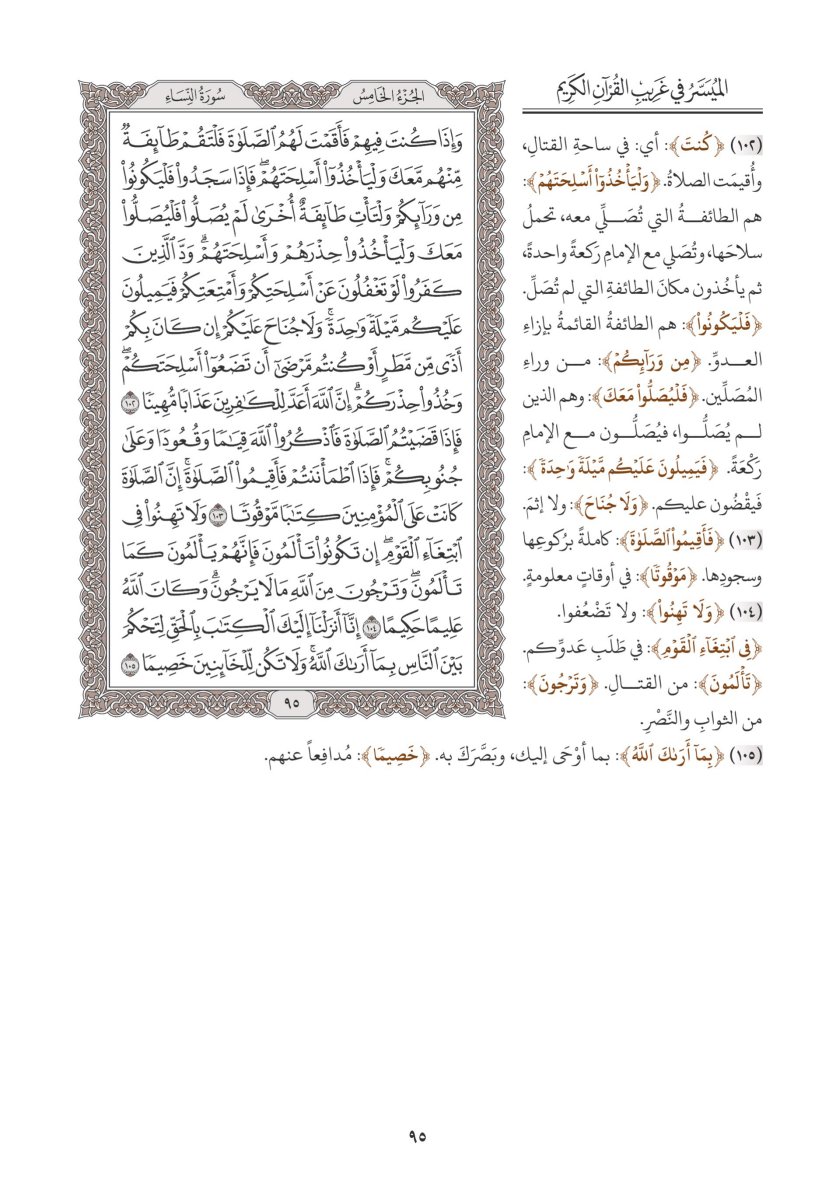 الميسر في غريب القرآن الكريم
(١٠٢) ﴿كُنتَ﴾: أي: في ساحةِ القتالِ،
وأُقيمَت الصلاةُ. ﴿وَلْيَأْخُذُوٓا۟ أَسْلِحَتَهُمْ﴾:
هم الطائفةُ التي تُصَلِّي معه، تحملُ
سلاحَها، وتُصَلي مع الإمامِ رَكعةً واحدةً،
ثم يأخُذون مكانَ الطائفةِ التي لم تُصَلِّ.
﴿فَلْيَكُونُوا۟﴾: هم الطائفةُ القائمةُ بإزاءِ
العدوِّ. ﴿مِن وَرَآئِكُمْ﴾: من وراءِ
المُصَلِّين. ﴿فَلْيُصَلُّوا۟ مَعَكَ﴾: وهم الذين
لم يُصَلُّوا، فيُصَلُّون مع الإمامِ
رَكْعَةً. ﴿فَيَمِيلُونَ عَلَيْكُم مَّيْلَةً وَٰحِدَةً﴾:
فَيقْضُون عليكم. ﴿وَلَا جُنَاحَ﴾: ولا إثمَ.
(١٠٣) ﴿فَأَقِيمُوا۟ ٱلصَّلَوٰةَ﴾: كاملةً برُكوعِها
وسجودِها. ﴿مَوْقُوتًا﴾: في أوقاتٍ معلومةٍ.
(١٠٤) ﴿وَلَا تَهِنُوا۟﴾: ولا تَضْعُفوا.
﴿فِى ٱبْتِغَآءِ ٱلْقَوْمِ﴾: في طَلَبِ عَدوِّكم.
﴿تَأْلَمُونَ﴾: من القتالِ. ﴿وَتَرْجُونَ﴾:
من الثوابِ والنَّصْرِ.
(١٠٥) ﴿بِمَآ أَرَىٰكَ ٱللَّهُ﴾: بما أوْحَى إليك، وبَصَّرَكَ به. ﴿خَصِيمًا﴾: مُدافِعاً عنهم.
الجُزْءُ الخَامِسُ
سُورَةُ النِّسَاءِ
وَإِذَا كُنتَ فِيهِمْ فَأَقَمْتَ لَهُمُ ٱلصَّلَوٰةَ فَلْتَقُمْ طَآئِفَةٌ
مِّنْهُم مَّعَكَ وَلْيَأْخُذُوٓا۟ أَسْلِحَتَهُمْۖ فَإِذَا سَجَدُوا۟ فَلْيَكُونُوا۟
مِن وَرَآئِكُمْ وَلْتَأْتِ طَآئِفَةٌ أُخْرَىٰ لَمْ يُصَلُّوا۟ فَلْيُصَلُّوا۟
مَعَكَ وَلْيَأْخُذُوا۟ حِذْرَهُمْ وَأَسْلِحَتَهُمْۗ وَدَّ ٱلَّذِينَ
كَفَرُوا۟ لَوْ تَغْفُلُونَ عَنْ أَسْلِحَتِكُمْ وَأَمْتِعَتِكُمْ فَيَمِيلُونَ
عَلَيْكُم مَّيْلَةً وَٰحِدَةًۚ وَلَا جُنَاحَ عَلَيْكُمْ إِن كَانَ بِكُمْ
أَذًى مِّن مَّطَرٍ أَوْ كُنتُم مَّرْضَىٰٓ أَن تَضَعُوٓا۟ أَسْلِحَتَكُمْۖ
وَخُذُوا۟ حِذْرَكُمْۗ إِنَّ ٱللَّهَ أَعَدَّ لِلْكَٰفِرِينَ عَذَابًا مُّهِينًا ١٠٢
فَإِذَا قَضَيْتُمُ ٱلصَّلَوٰةَ فَٱذْكُرُوا۟ ٱللَّهَ قِيَٰمًا وَقُعُودًا وَعَلَىٰ
جُنُوبِكُمْۚ فَإِذَا ٱطْمَأْنَنتُمْ فَأَقِيمُوا۟ ٱلصَّلَوٰةَۚ إِنَّ ٱلصَّلَوٰةَ
كَانَتْ عَلَى ٱلْمُؤْمِنِينَ كِتَٰبًا مَّوْقُوتًا ١٠٣ وَلَا تَهِنُوا۟ فِى
ٱبْتِغَآءِ ٱلْقَوْمِۖ إِن تَكُونُوا۟ تَأْلَمُونَ فَإِنَّهُمْ يَأْلَمُونَ كَمَا
تَأْلَمُونَۖ وَتَرْجُونَ مِنَ ٱللَّهِ مَا لَا يَرْجُونَۗ وَكَانَ ٱللَّهُ
عَلِيمًا حَكِيمًا ١٠٤ إِنَّآ أَنزَلْنَآ إِلَيْكَ ٱلْكِتَٰبَ بِٱلْحَقِّ لِتَحْكُمَ
بَيْنَ ٱلنَّاسِ بِمَآ أَرَىٰكَ ٱللَّهُۚ وَلَا تَكُن لِّلْخَآئِنِينَ خَصِيمًا ١٠٥
٩٥
٩٥